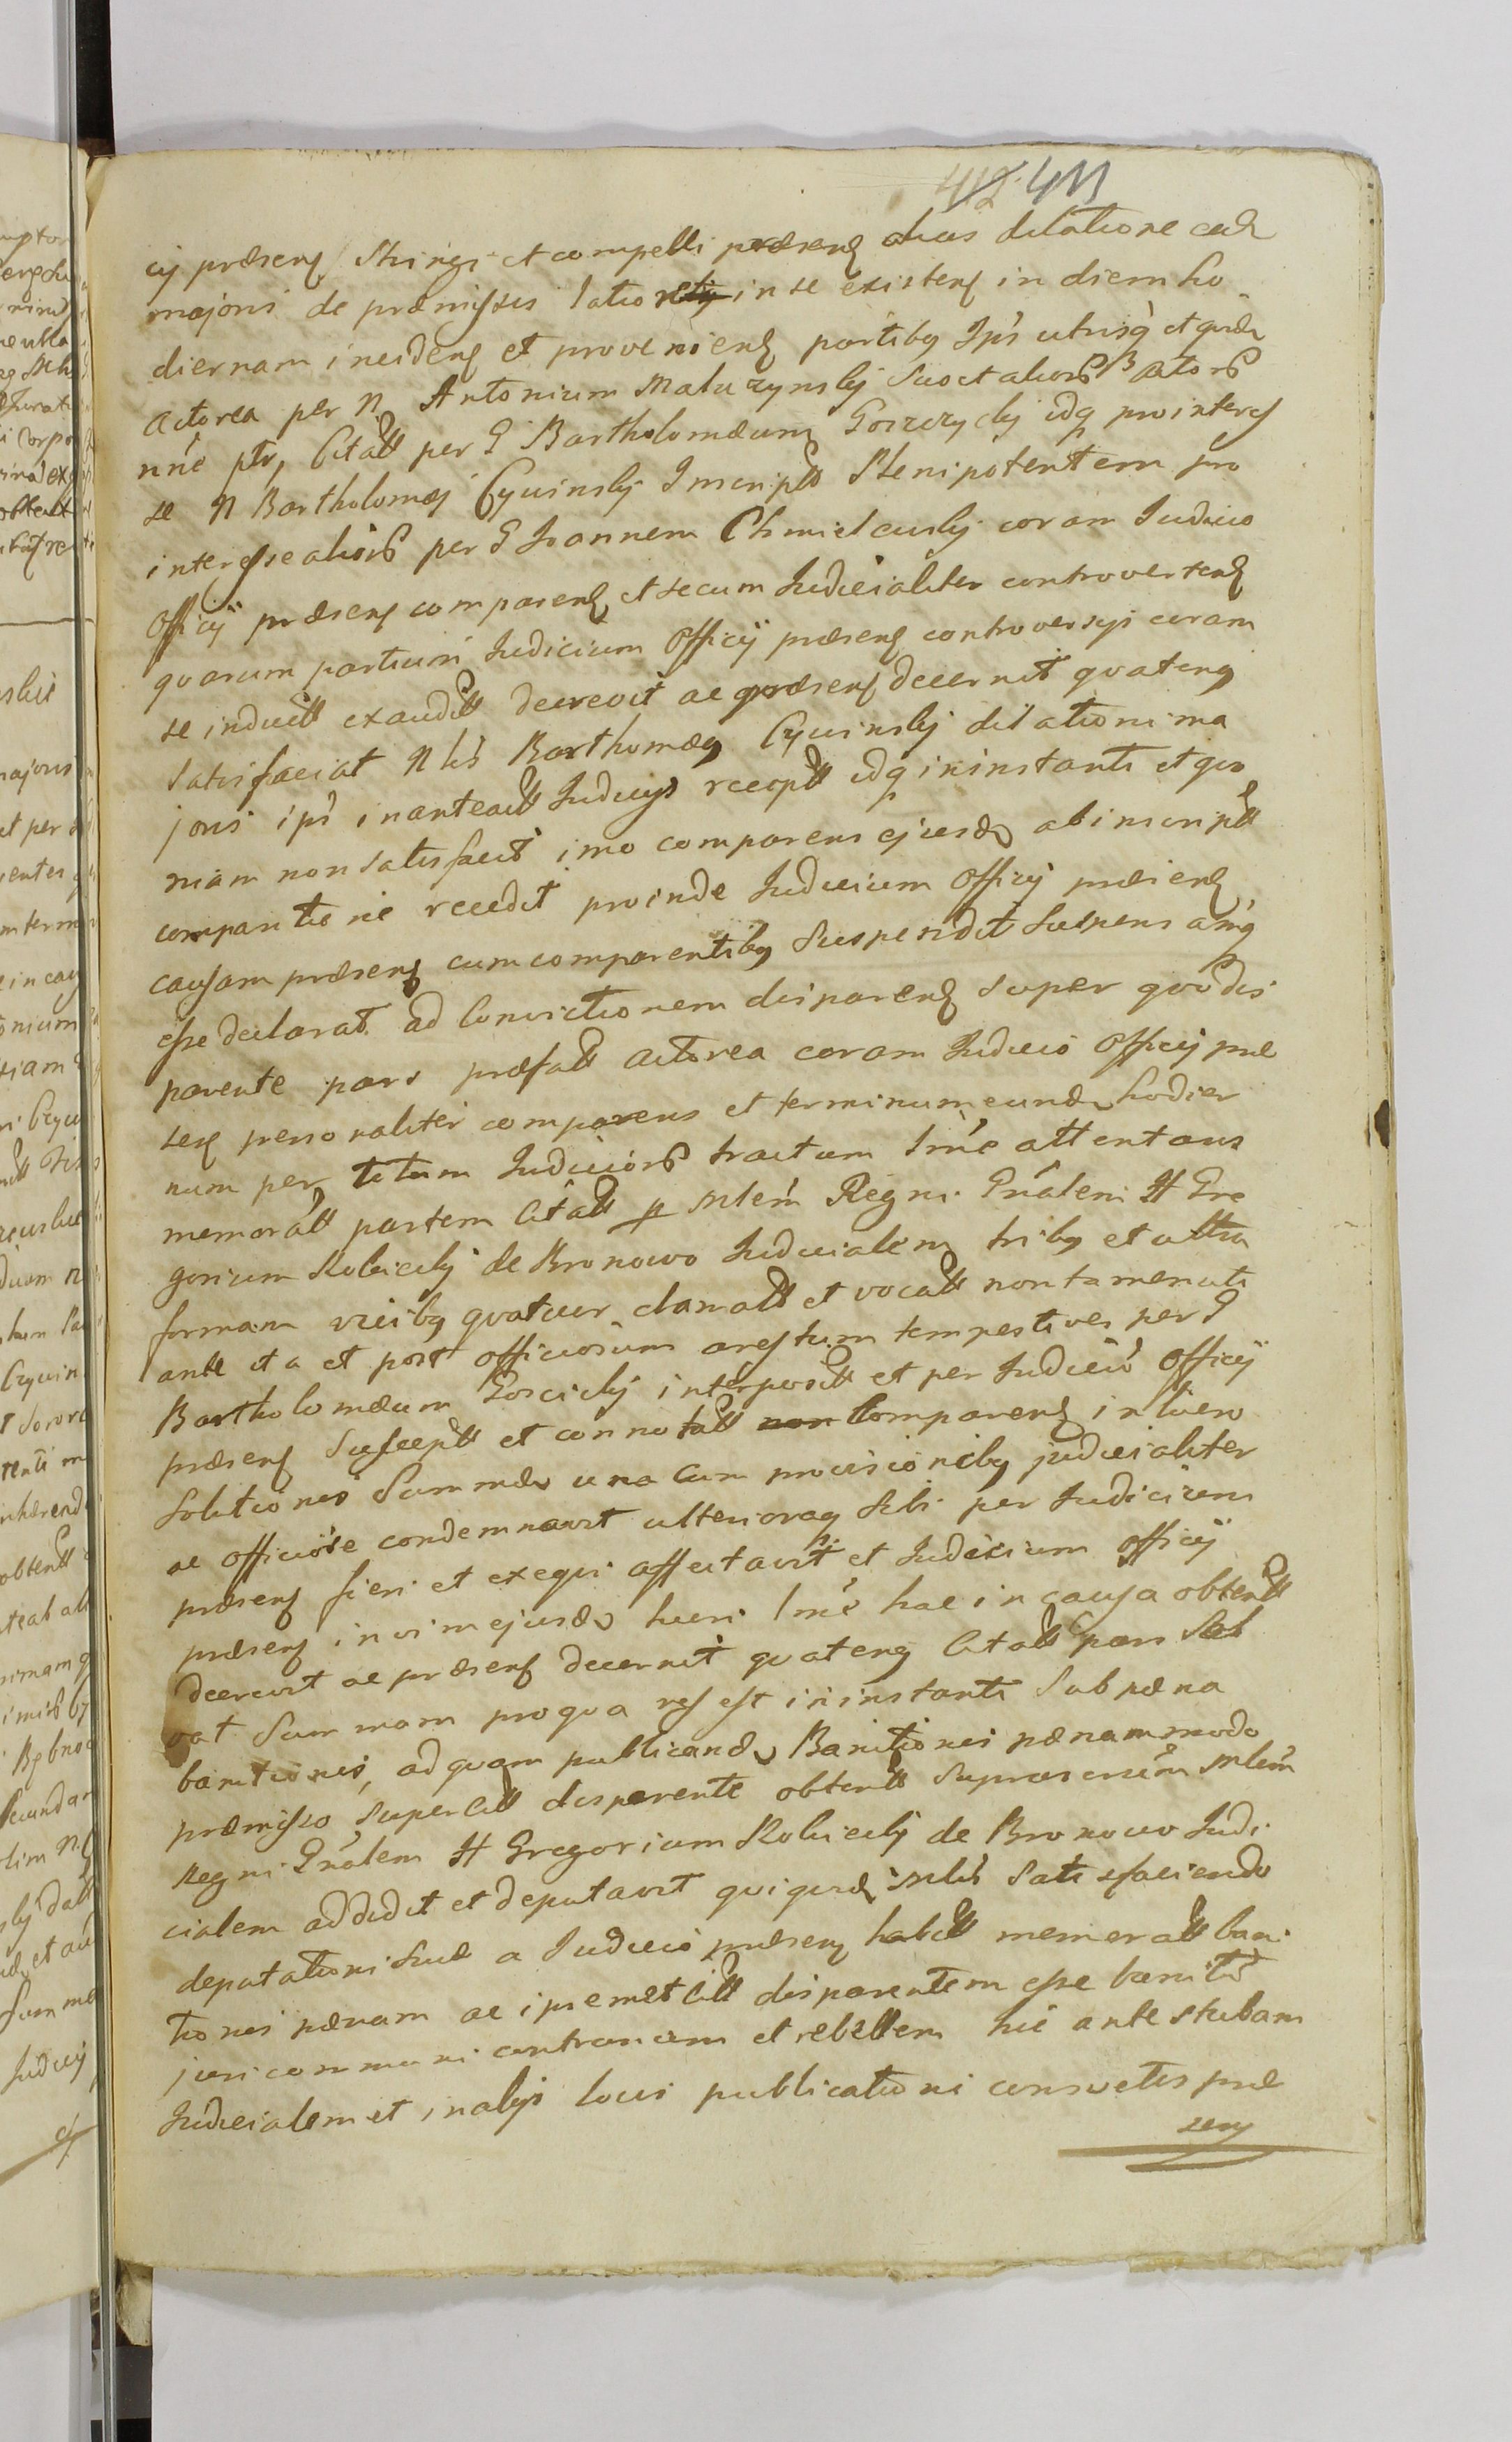 412 411
cij præsens stringi et compelli præsens alias dilatione ead
majoris de præmissis latio in se existens in diem ho
diernam incidens et proveniens partibus Ipsis utrisq et quidem
actorea per N Antonium Maluzynskj suo et aliorum actorum
nne ptr, Citatt per G Bartholomæum Gorzyckj idq pro interes
se N Bartholomæj Cywinskj Inscriptt Plenipotentem pro
interesse aliorum per G Joannem Chmielewskj coram Judicio
Officij præsens comparens et secum Judicialiter controvertens
quarum partium Judicium Officij præsens controversijs coram
se inductt exauditt decrevit ac præsens decernit quatenus
satisfaciat Nlis Barthomæus Cywinskj dilationi ma
joris ipsi in anteactt Judicijs receptt idq in instanti et quo
niam non satisfecit imo comparens ejusdem ab inscriptt
comparitione recedit proinde Judicium Officij præsens
causam præsens cum comparentibus suspendit suspensamq
esse declarat ad Convictionem disparens super quo dis
parente pars præfatt actorea coram Judicio Officij præ
sens personaliter comparens et terminum eundem hodier
num per totum Judiciorum tractum lrme attentans
memoratt partem Citatt p Mlem Regni Gnalem H Gre
gorium Kobieckj de Bronowo Judicialem tribus et ultra
formam vicibus quatuor clamatt et vocatt non tamen uti
ante ita et post officiosum arestum tempestive per G
Bartholomæum Gorcickj interpositt et per Judiciu Officij
præsens susceptt et connotatt non Comparens in lucro
solutionis Summæ una cum provisionibus judicialiter
ac officiose condemnavit ulterioraq sibi per Judicium
præsens fieri et exequi affectavit et Judicium Officij
præsens in vim ejusdem lucri lrme hac in causa obtentt
decrevit ac præsens decernit quatenus Citatt pars Sol
vat Summam pro qua res est in instanti sub pæna
banitionis, ad quam publicandam Banitionis pænam modo
præmisso super Citt disparente obtentt supra srium Mlem
Regni Gnalem H Gregorium Kobieckj de Bronowo Judi
cialem addidit et deputavit qui quidem Mlis satisfaciendo
deputationi suæ a Judicio præsens habitt memoratt bani
tionis pænam ac ipsemet Citt disparentem esse banitu
juri communi contrarium et rebellem hic ante stubam
Judicialem et in alijs locis publicationi consvetis præ
sens